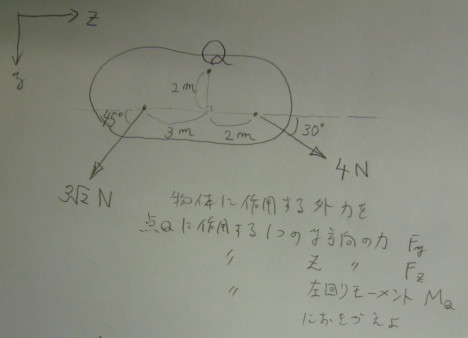 z
y
Q
2m
45°
3m
2m
30°
3√2 N
4N
物体に作用する外力を
点Qに作用する1つのy方向の力 Fy
〃 z 〃 Fz
〃 左回りモーメント MQ
におきかえよ